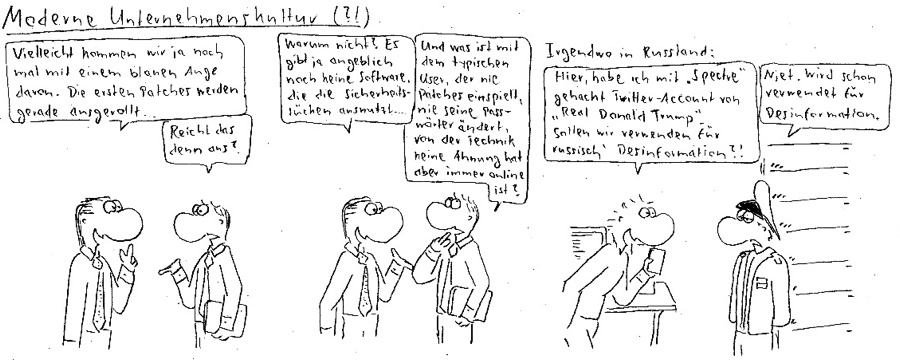 Moderne Unternehmenskultur (?!)
Vielleicht kommen wir ja noch
mal mit einem blauen Auge
davon. Die ersten Patches werden
gerade ausgerollt...
Reicht das
denn aus?
Warum nicht? Es
gibt ja angeblich
noch keine Software,
die die Sicherheits-
lücken ausnutzt...
Und was ist mit
dem typischen
User, der nie
Patches einspielt,
nie seine Pass-
wörter ändert,
von der Technik
keine Ahnung hat
aber immer online
ist?
Irgendwo in Russland:
Hier, habe ich mit „Spectre"
gehackt Twitter-Account von
„Real Donald Trump".
Sollen wir verwenden für
russisch' Desinformation?!
Njet. Wird schon
verwendet für
Desinformation.